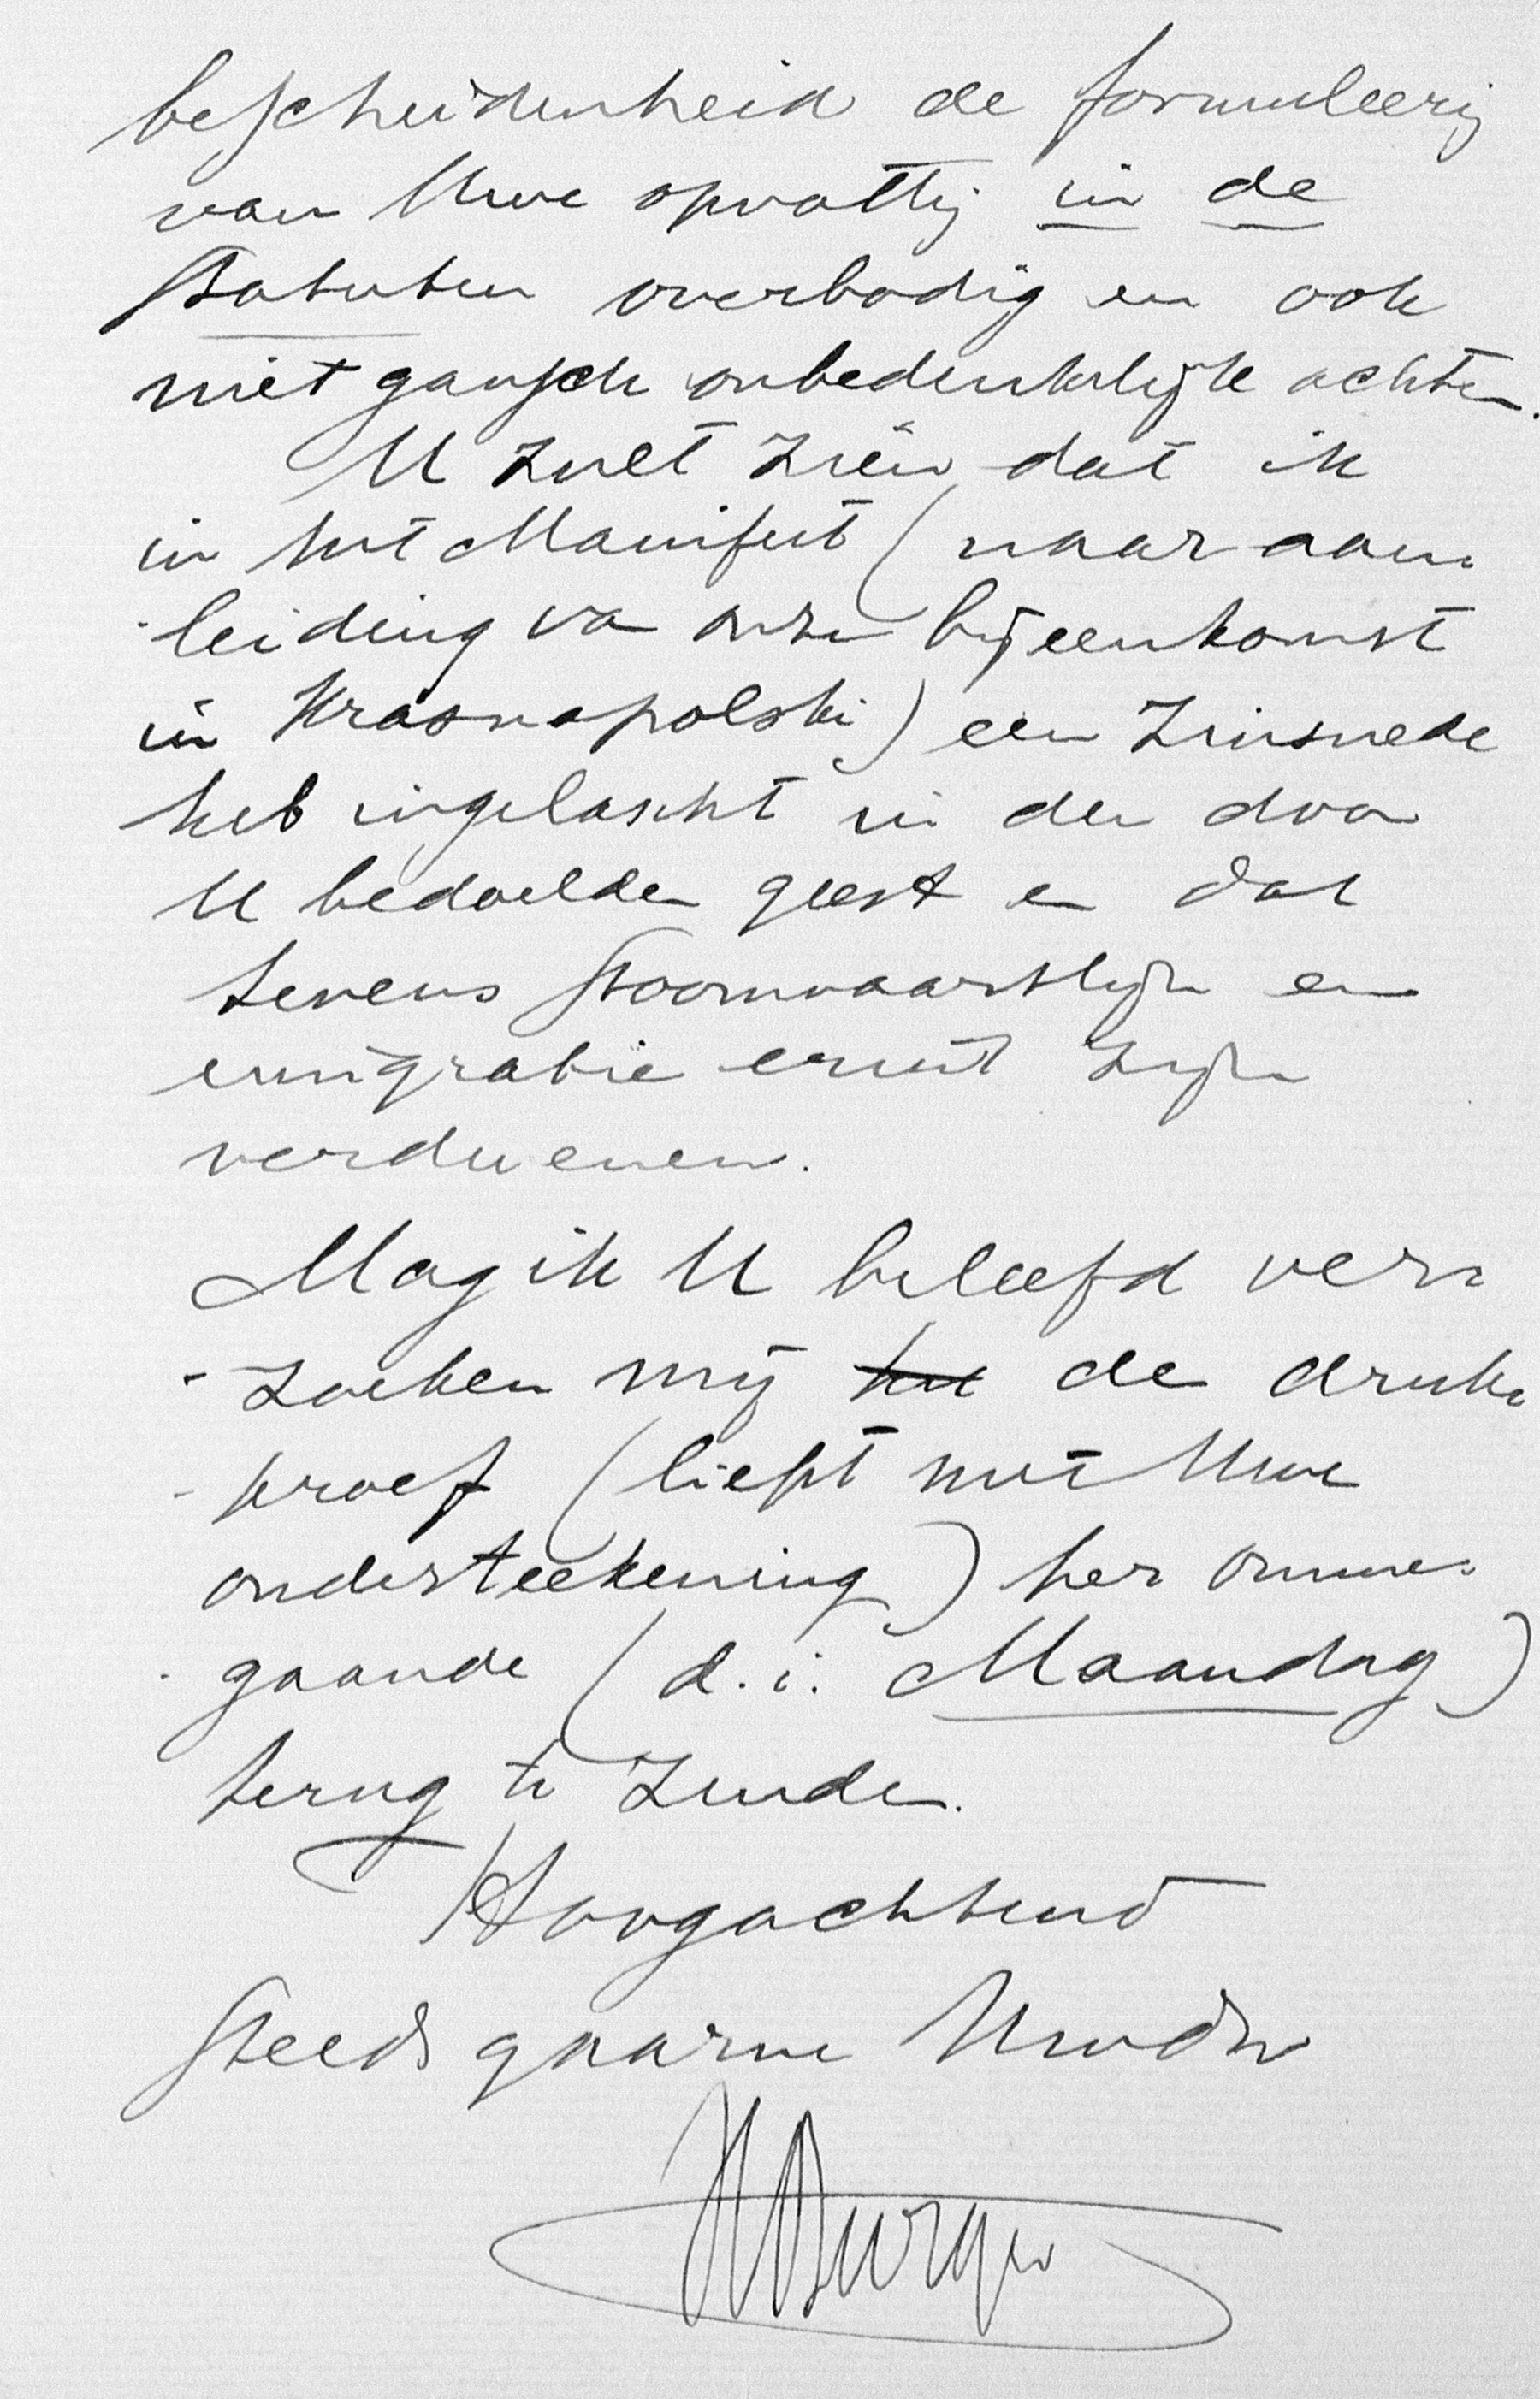 bescheidenheid de formuleering
van Uwe opvattig in de
Statuten overbodig en ook
niet gansch onbedenkelijk achten.
U zult zien dat ik
in het Manifest (naar aan-
-leiding van onze bijeenkomst
in Krasnapolski) een zinsnede
heb ingelascht in den door
U bedoelden geest en dat
tevens Stoomvaartlijn en
emigratie eruit zijn
verdwenen.
Mag ik U beleefd ver-
-zoeken mij het de druk-
-proef (liefst met Uwe
onderteekening) per omme-
-gaande (d.i. Maandag)
terug te zenden.
Hoogachtend
Steeds gaarne Uwdw
HBurger